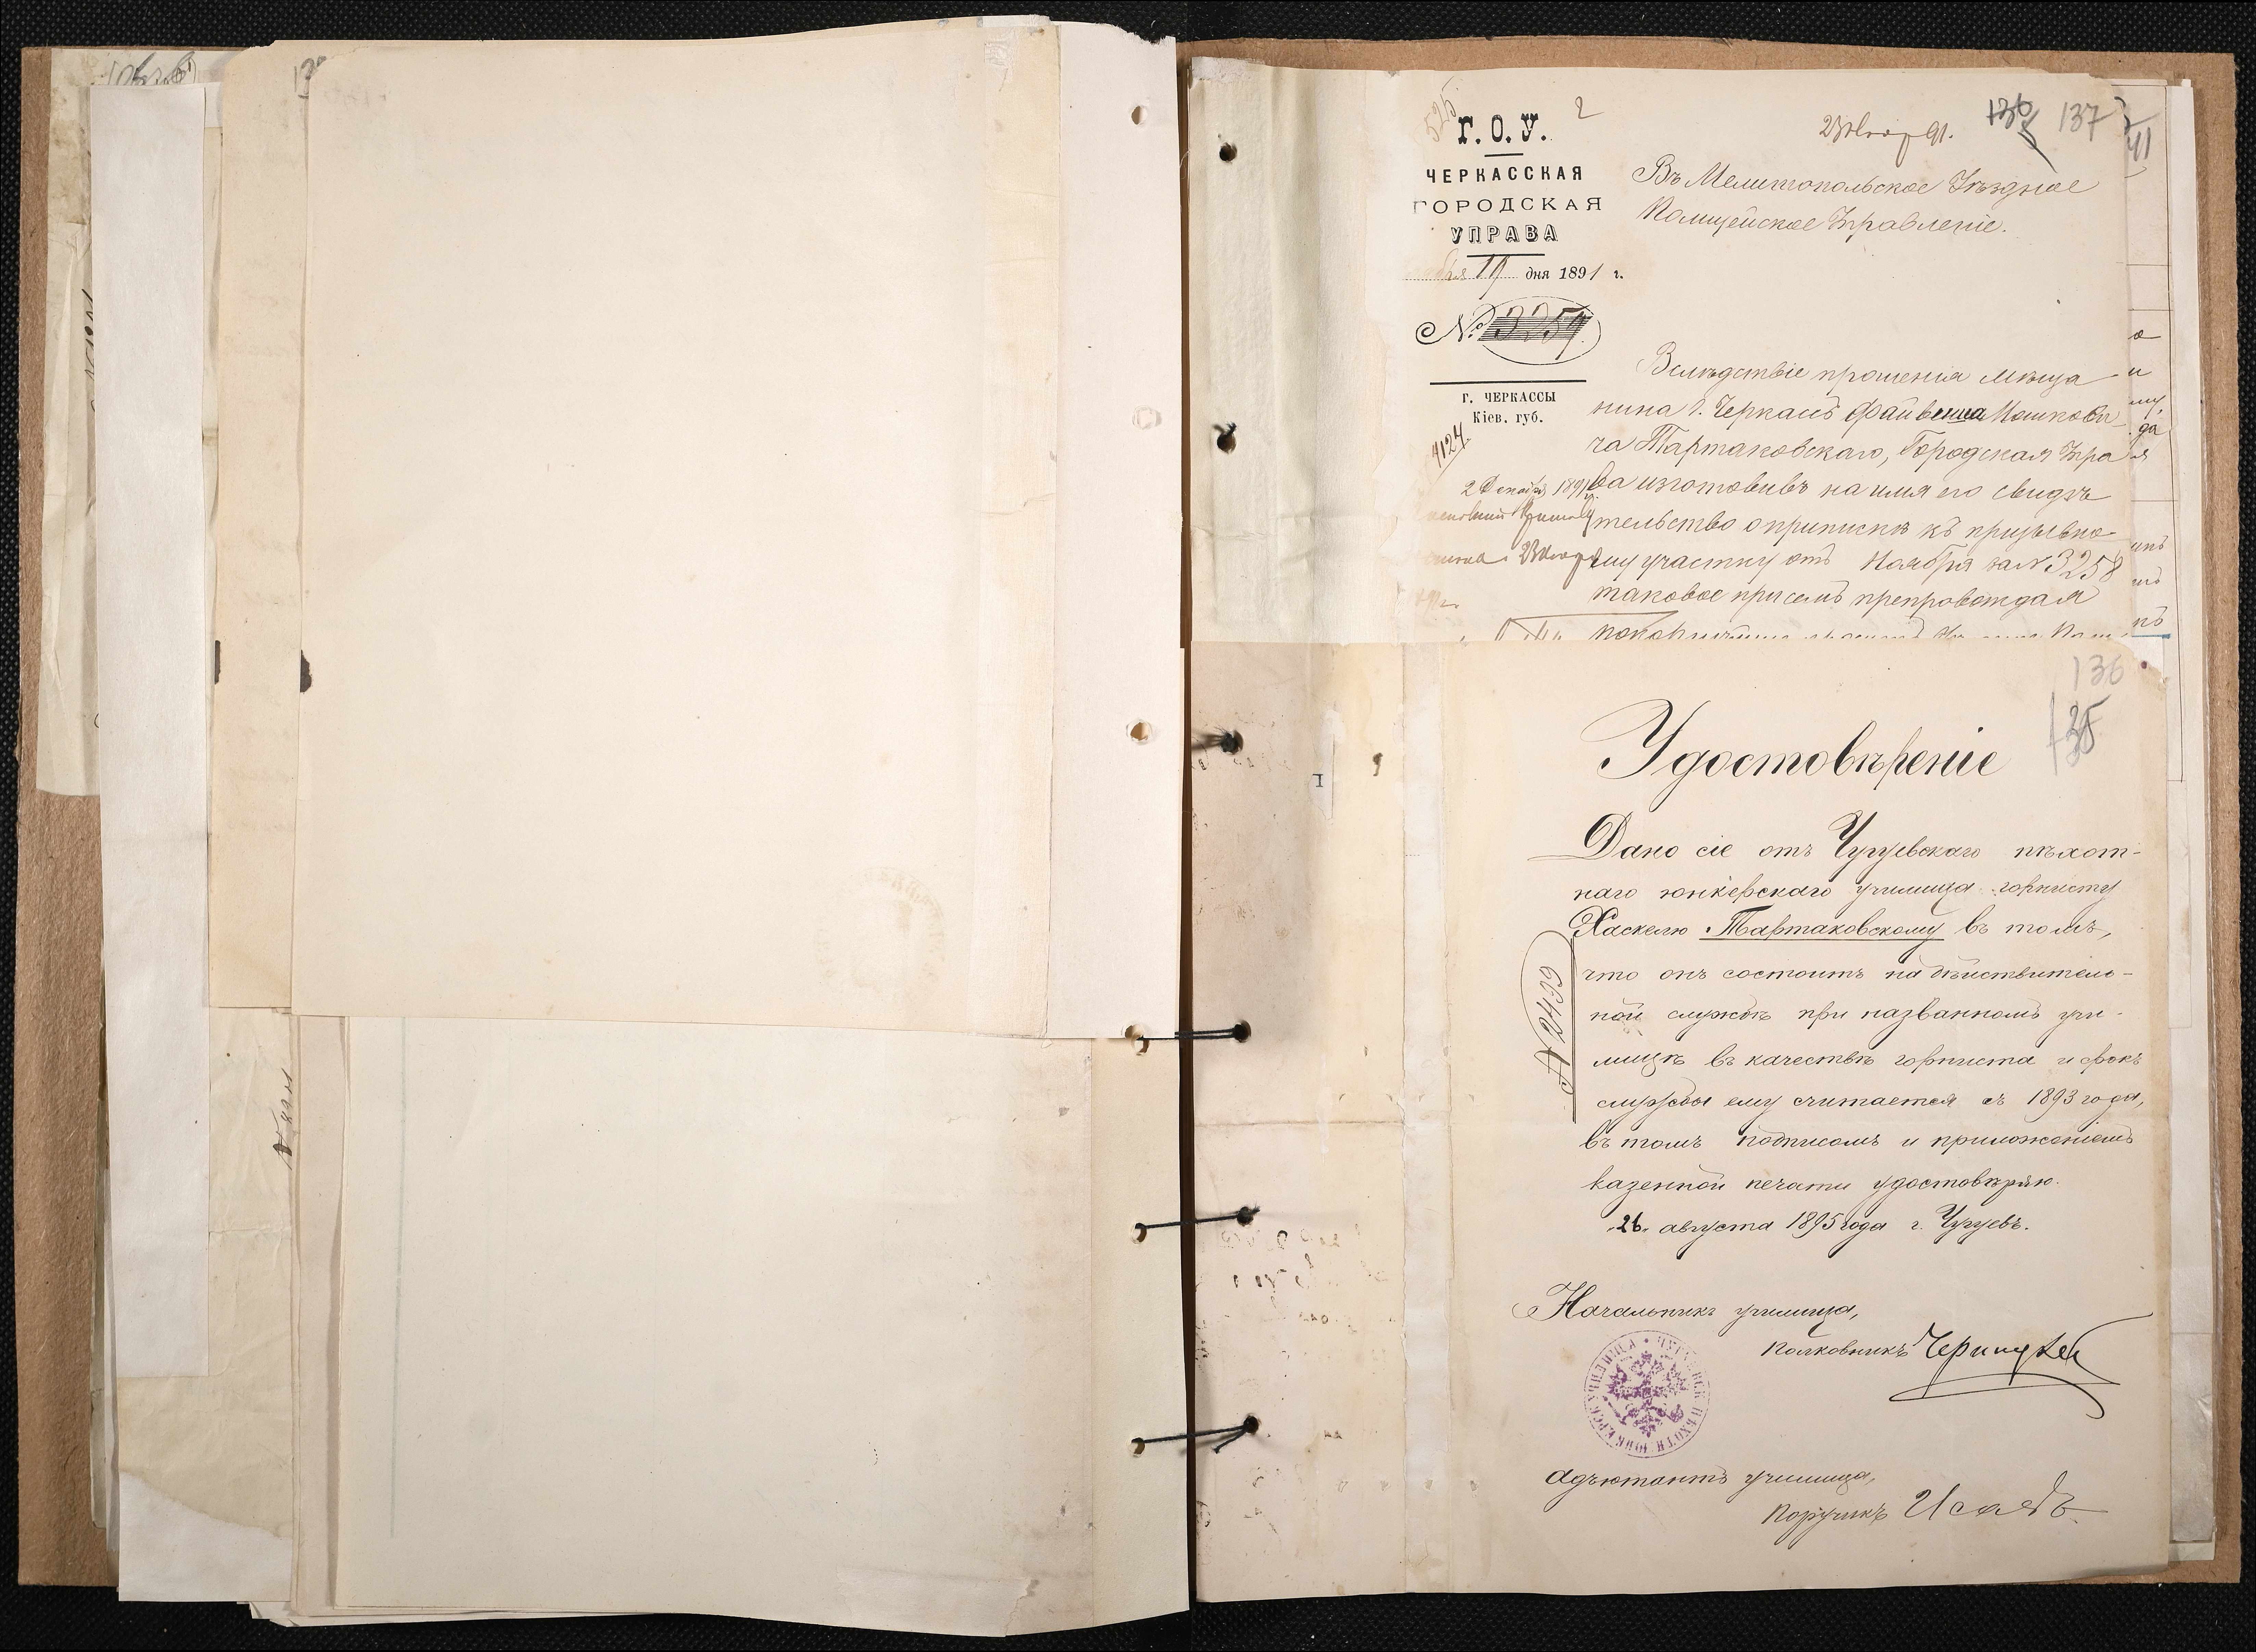 525
2
Г. О. У.
ЧЕРКАССКАЯ
ГОРОДСКАЯ
УПРАВА
19 дня 1891 г.
№ 3259.
г. ЧЕРКАССЫ
Кіев. губ.
4124
136 137
41
Въ Мелитопольское Уѣздное
Полицейское Управленіе.
Вслѣдствіе прошенія мѣща
нина г. Черкассъ Файвиша Мошкови
ча Тартаковскаго, Городская Упра
ва изготовивъ на имя его свидѣ
тельство о припискѣ къ призывно
му участку отъ Ноября за № 3258
таковое при семъ препровождая
136
135
Удостовѣреніе
Дано сіе отъ Чугуевскаго пѣхот-
наго юнкерскаго училища горнисту
Хаскелю Тартаковскому въ томъ,
что онъ состоитъ на дѣйствитель-
ной службѣ при названномъ учи-
лищѣ въ качествѣ горниста и срокъ
службы ему считается съ 1893 года,
въ томъ подписомъ и приложеніемъ
казенной печати удостовѣряю.
26 августа 1895 года г. Чугуевъ.
№ 2499
Начальникъ училища,
Полковникъ
Адъютантъ училища,
Поручикъ Исаевъ